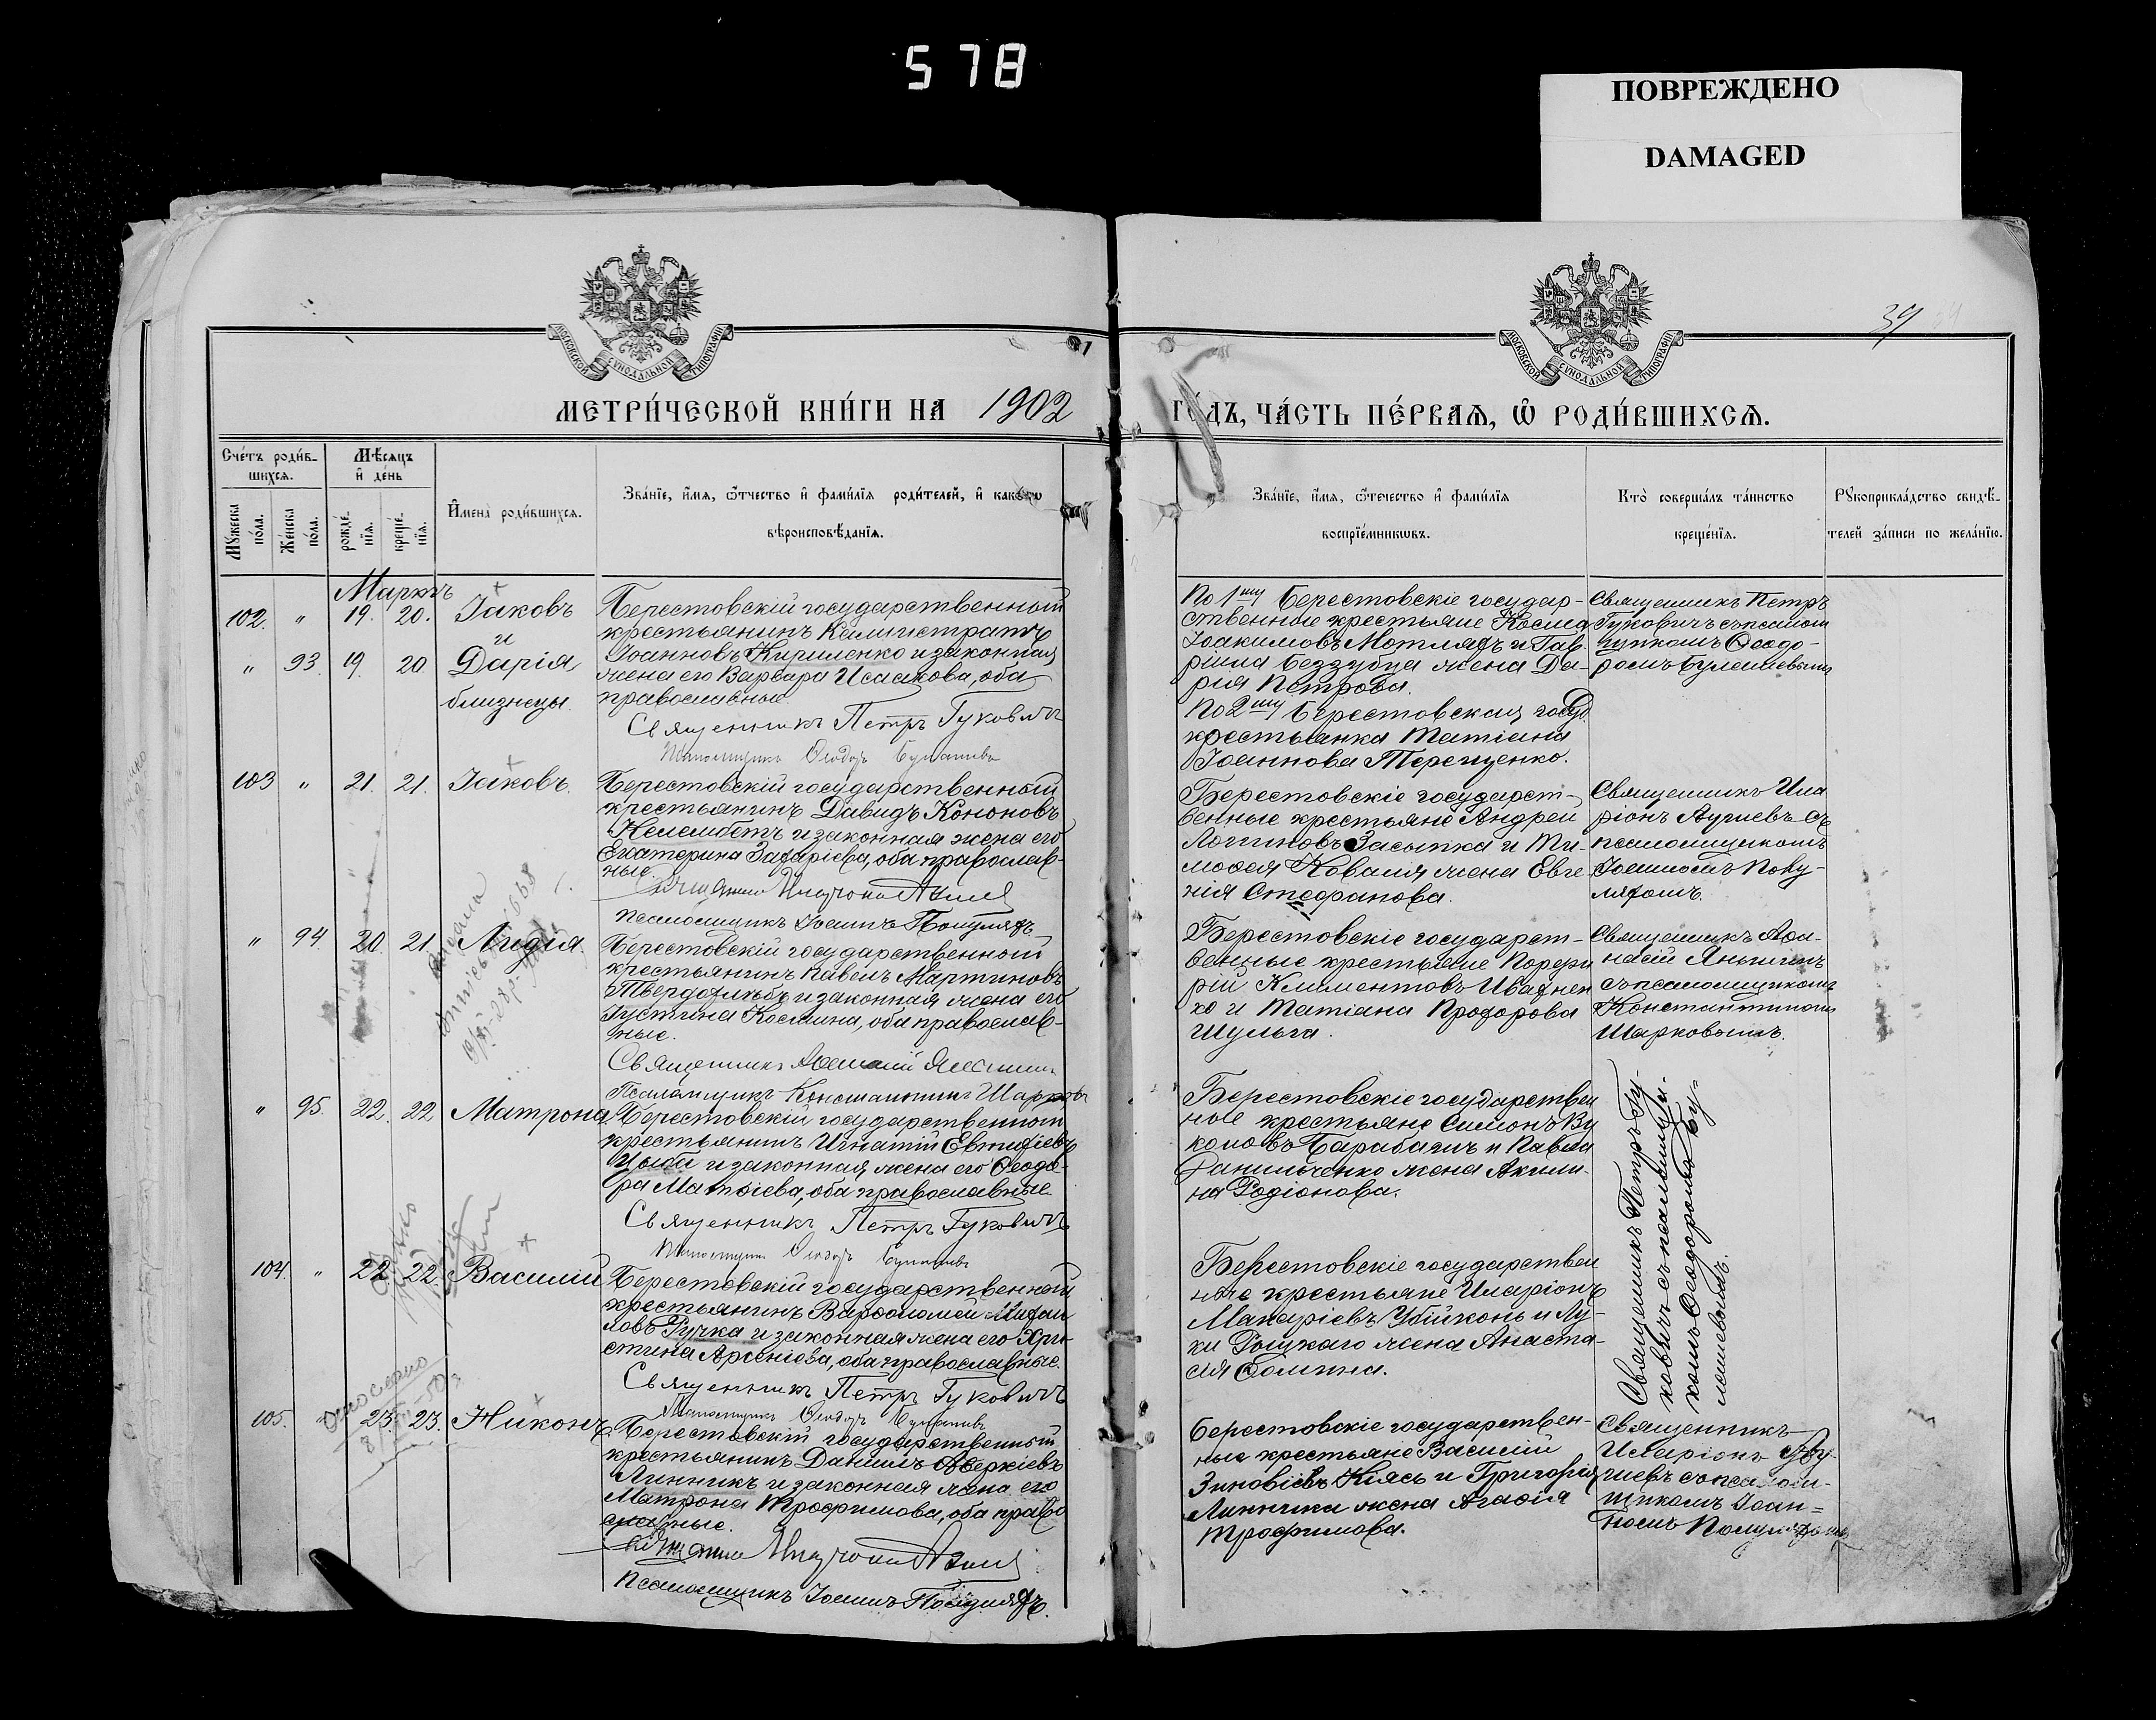 578
ПОВРЕЖДЕНО
DAMAGED
39
МОСКОВСКОЙ СѴНОДАЛЬНОЙ ТИПОГРАФІИ
МОСКОВСКОЙ СѴНОДАЛЬНОЙ ТИПОГРАФІИ
МЕТРИ́ЧЕСКОЙ КНИ́ГИ НА 1902
ГО́ДЪ, ЧА́СТЬ ПЕ́РВАѦ, Ѡ РОДИ́ВШИХСѦ.
Сче́тъ роди́в-
шихсѧ.
Мѣ́сѧцъ
и҆ де́нь
Мꙋ́жеска
по́ла.
Же́нска
по́ла.
рожде́-
нїѧ.
креще́-
нїѧ.
И҆мена̀ роди́вшихсѧ.
Зва́нїе, и҆́мѧ, ѻ҆́тчество и҆ фами́лїѧ роди́телей, и҆ како́гѡ
вѣроисповѣ́данїѧ.
Зва́нїе, и҆́мѧ, ѻ҆те́чество и҆ фами́лїѧ
воспрїе́мникѡвъ.
Кто̀ соверша́лъ та́инство
креще́нїѧ.
Рꙋкоприкла́дство свидѣ́-
телей за́писи по жела́нїю.
Мартъ
102. " 19. 20. Іаковъ
и
" 93. 19. 20 Дарія,
близнецы.
Берестовскій государственный
крестьянинъ Каллистратъ
Іоанновъ Кириленко и законная
жена его Варвара Исаакова, оба
православные.
Священникъ Петръ Гуковичъ
Псаломщикъ Ѳеодоръ
По 1му Берестовскіе государ-
ственные крестьяне Косма
Іоакимовъ Мотляхъ и Гав-
ріила Беззубца жена Да-
рія Петрова.
По 2му Берестовская госуд.
крестьянка Татіана
Іоаннова Терещенко.
Священникъ Петръ
Гуковичъ съ псалом
щикомъ Ѳеодо-
ромъ
103 " 21. 21. Іаковъ.
Берестовскій государственный
крестьянинъ Давидъ Кононовъ
Келембетъ и законная жена его
Екатерина Захаріева, оба православ-
ные.
Псаломщикъ Іоаннъ
Берестовскіе государст-
венные крестьяне Андрей
Логгиновъ Засыпка и Ти-
моѳея Коваля жена Евге-
нія Стефанова.
Священникъ Ила
ріонъ съ
псаломщикомъ
Іоанномъ
" 94. 20. 21. Лидія.
Берестовскій государственный
крестьянинъ Павелъ Мартиновъ
Твердохлѣбъ и законная жена его
Іустина Космина, оба православ-
ные.
Священникъ
Псаломщикъ Константинъ Шарковъ
Берестовскіе государст-
венные крестьяне Порфи
рій Климентовъ Ивахнен
ко и Татіана Прохорова
Шульга.
Священникъ Аѳа-
насій
съ псаломщикомъ
Константиномъ
Шарковымъ.
" 95. 22. 22 Матрона.
Берестовскій государственный
крестьянинъ Игнатій Евтихіевъ
Цыба и законная жена его Ѳеодо-
ра Матѳіева, оба православные.
Священникъ Петръ Гуковичъ
Псаломщикъ Ѳеодоръ
Берестовскіе государствен
ные крестьяне Симонъ Ву
коловъ Барабашъ и Павла
Данильченко жена Акили-
на Родіонова.
Священникъ Петръ Гу-
ковичъ съ псаломщи-
комъ Ѳеодоромъ
104. " 22 22. Василій
Берестовскій государственный
крестьянинъ Варѳоломей Михаи
ловъ Ручка и законная жена его Хри-
стина Арсеніева, оба православные.
Священникъ Петръ Гуковичъ
Псаломщикъ Ѳеодоръ
Берестовскіе государствен
ные крестьяне Иларіонъ
Макаріевъ Убійконь и Лу-
ки жена Анаста-
сія Ѳомина.
105. 23. 23. Никонъ
Берестовскій государственный
крестьянинъ Даніилъ Аверкіевъ
Линникъ и законная жена его
Матрона Трофимова, оба право
славные.
Псаломщикъ Іоаннъ
Берестовскіе государствен-
ные крестьяне Василій
Зиновіевъ Кіясъ и Григорія
Линника жена Агаѳія
Трофимова.
Священникъ
Иларіонъ
съ псалом-
щикомъ Іоан-
номъ